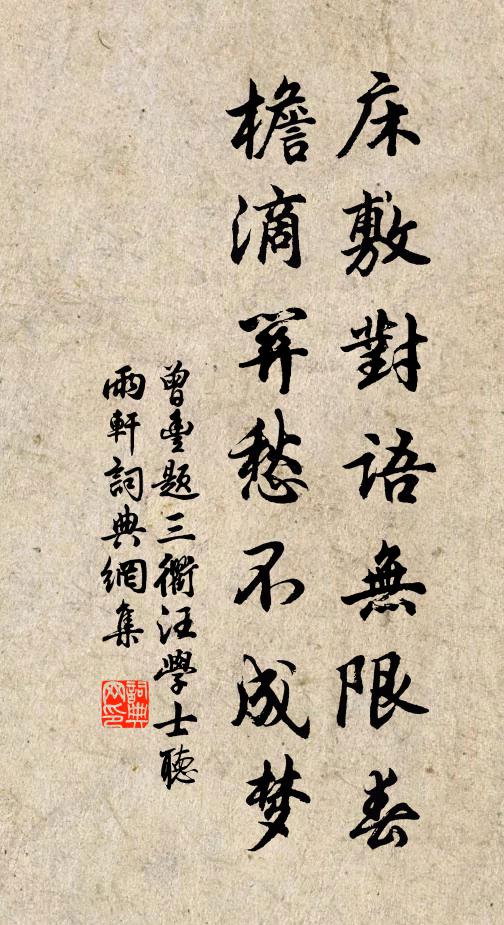 床敷對語無限春
檐滴算愁不成梦
曾豐题三衢汪學士聽
雨軒詞典網集
詞典
网印